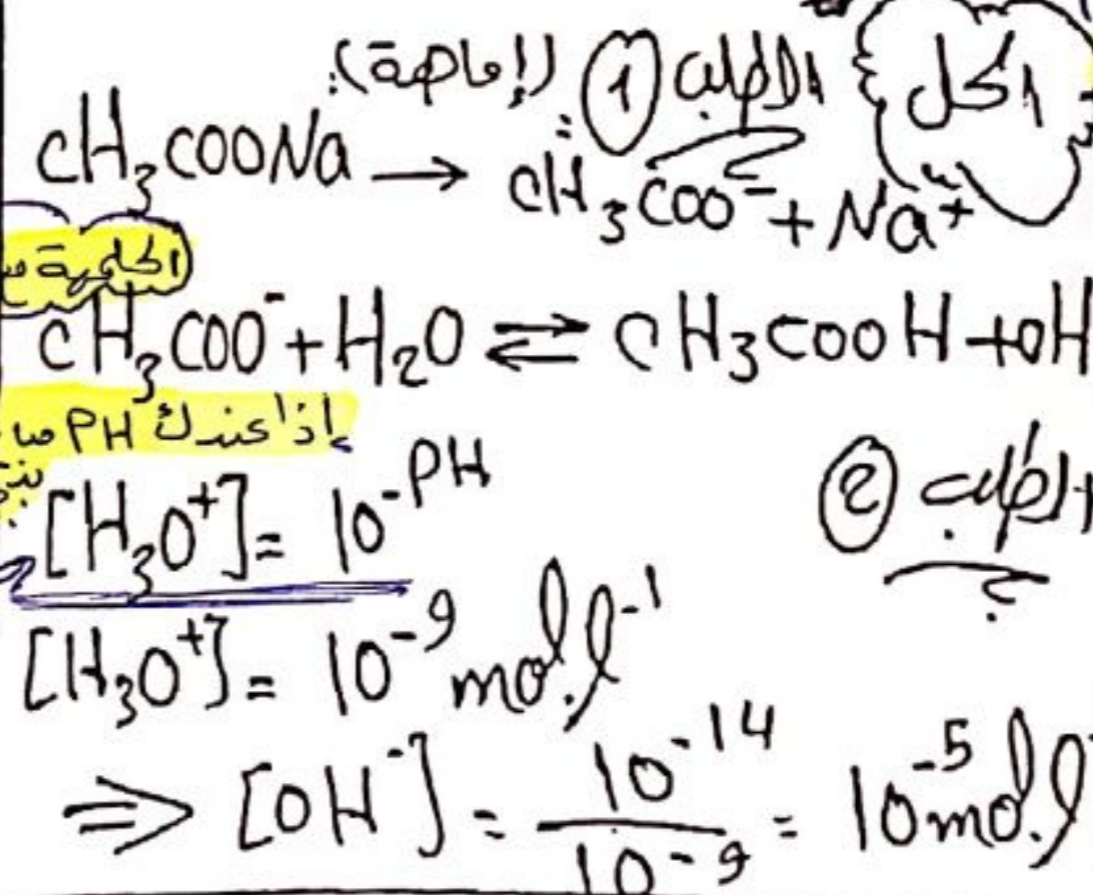 الحل
الطلب ① (إماهة):
CH₃COONa → CH₃COO⁻ + Na⁺
CH₃COO⁻ + H₂O ⇌ CH₃COOH + OH
إذا عندك PH
الطلب ②
[H₃O⁺] = 10⁻ᴾᴴ
[H₃O⁺] = 10⁻⁹ mol.l⁻¹
⇒ [OH⁻] = 10⁻¹⁴ / 10⁻⁹ = 10⁻⁵ mol.l